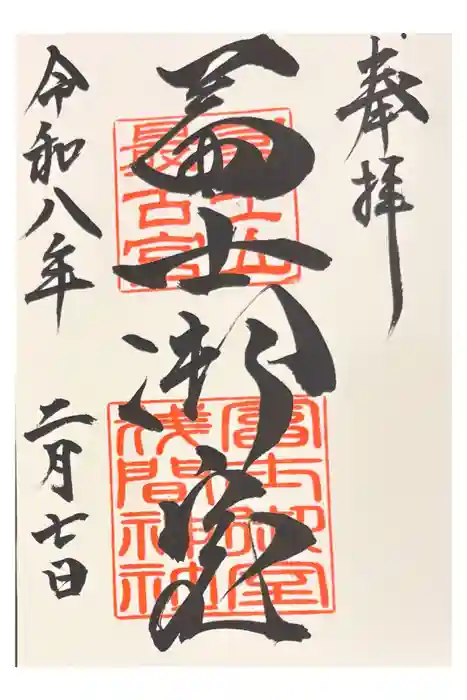 奉拝
冨士山
最古宮
冨士御室
冨士御室
浅間神社
令和八年 二月七日